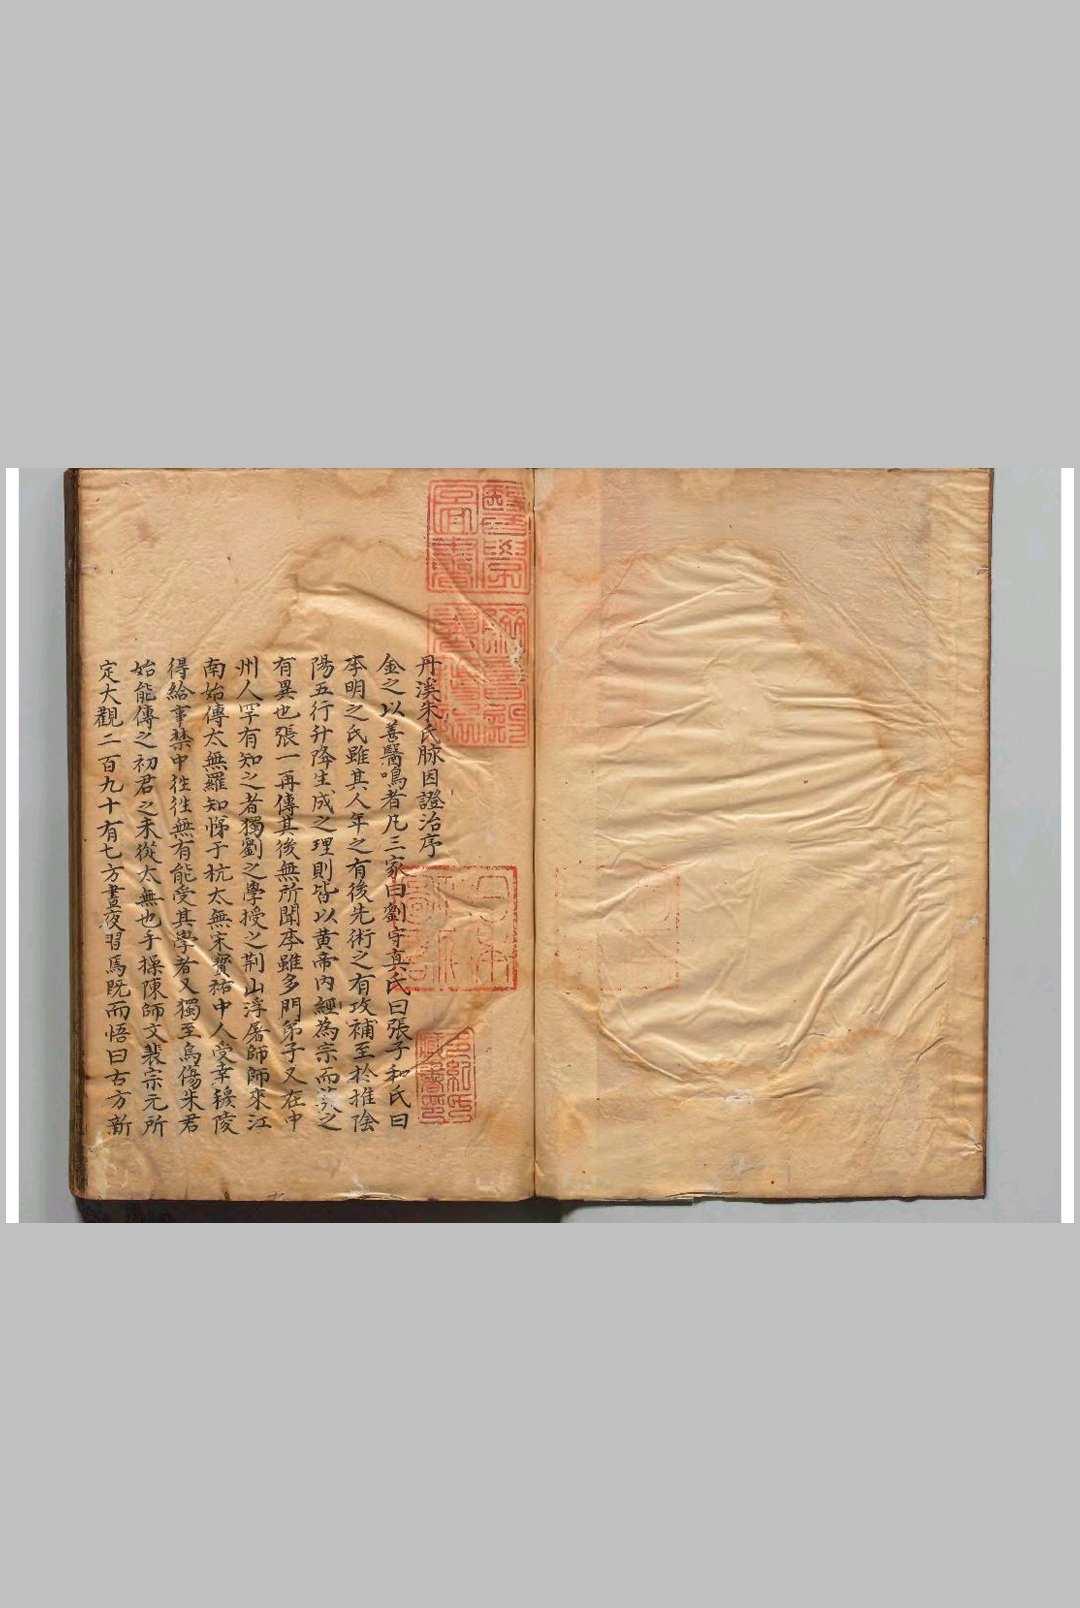 丹溪朱氏脉因證治序
金之以善醫鳴者凡三家曰劉守真氏曰張子和氏曰
李明之氏雖其人年之有後先術之有攻補至於推陰
陽五行升降生成之理則皆以黄帝内經為宗而莫之
有異也張一再傳其後無所聞李雖多門弟子又在中
州人罕有知之者獨劉之學授之荆山浮屠師師來江
南始傳太無羅知悌于杭太無宋寳祐中人受幸穆陵
得給事禁中徃徃無有能受其學者又獨至烏傷朱君
始能傳之初君之未從太無也手操陳師文裴宗元所
定大觀二百九十有七方晝夜習焉既而悟曰古方新
醫學
圖書